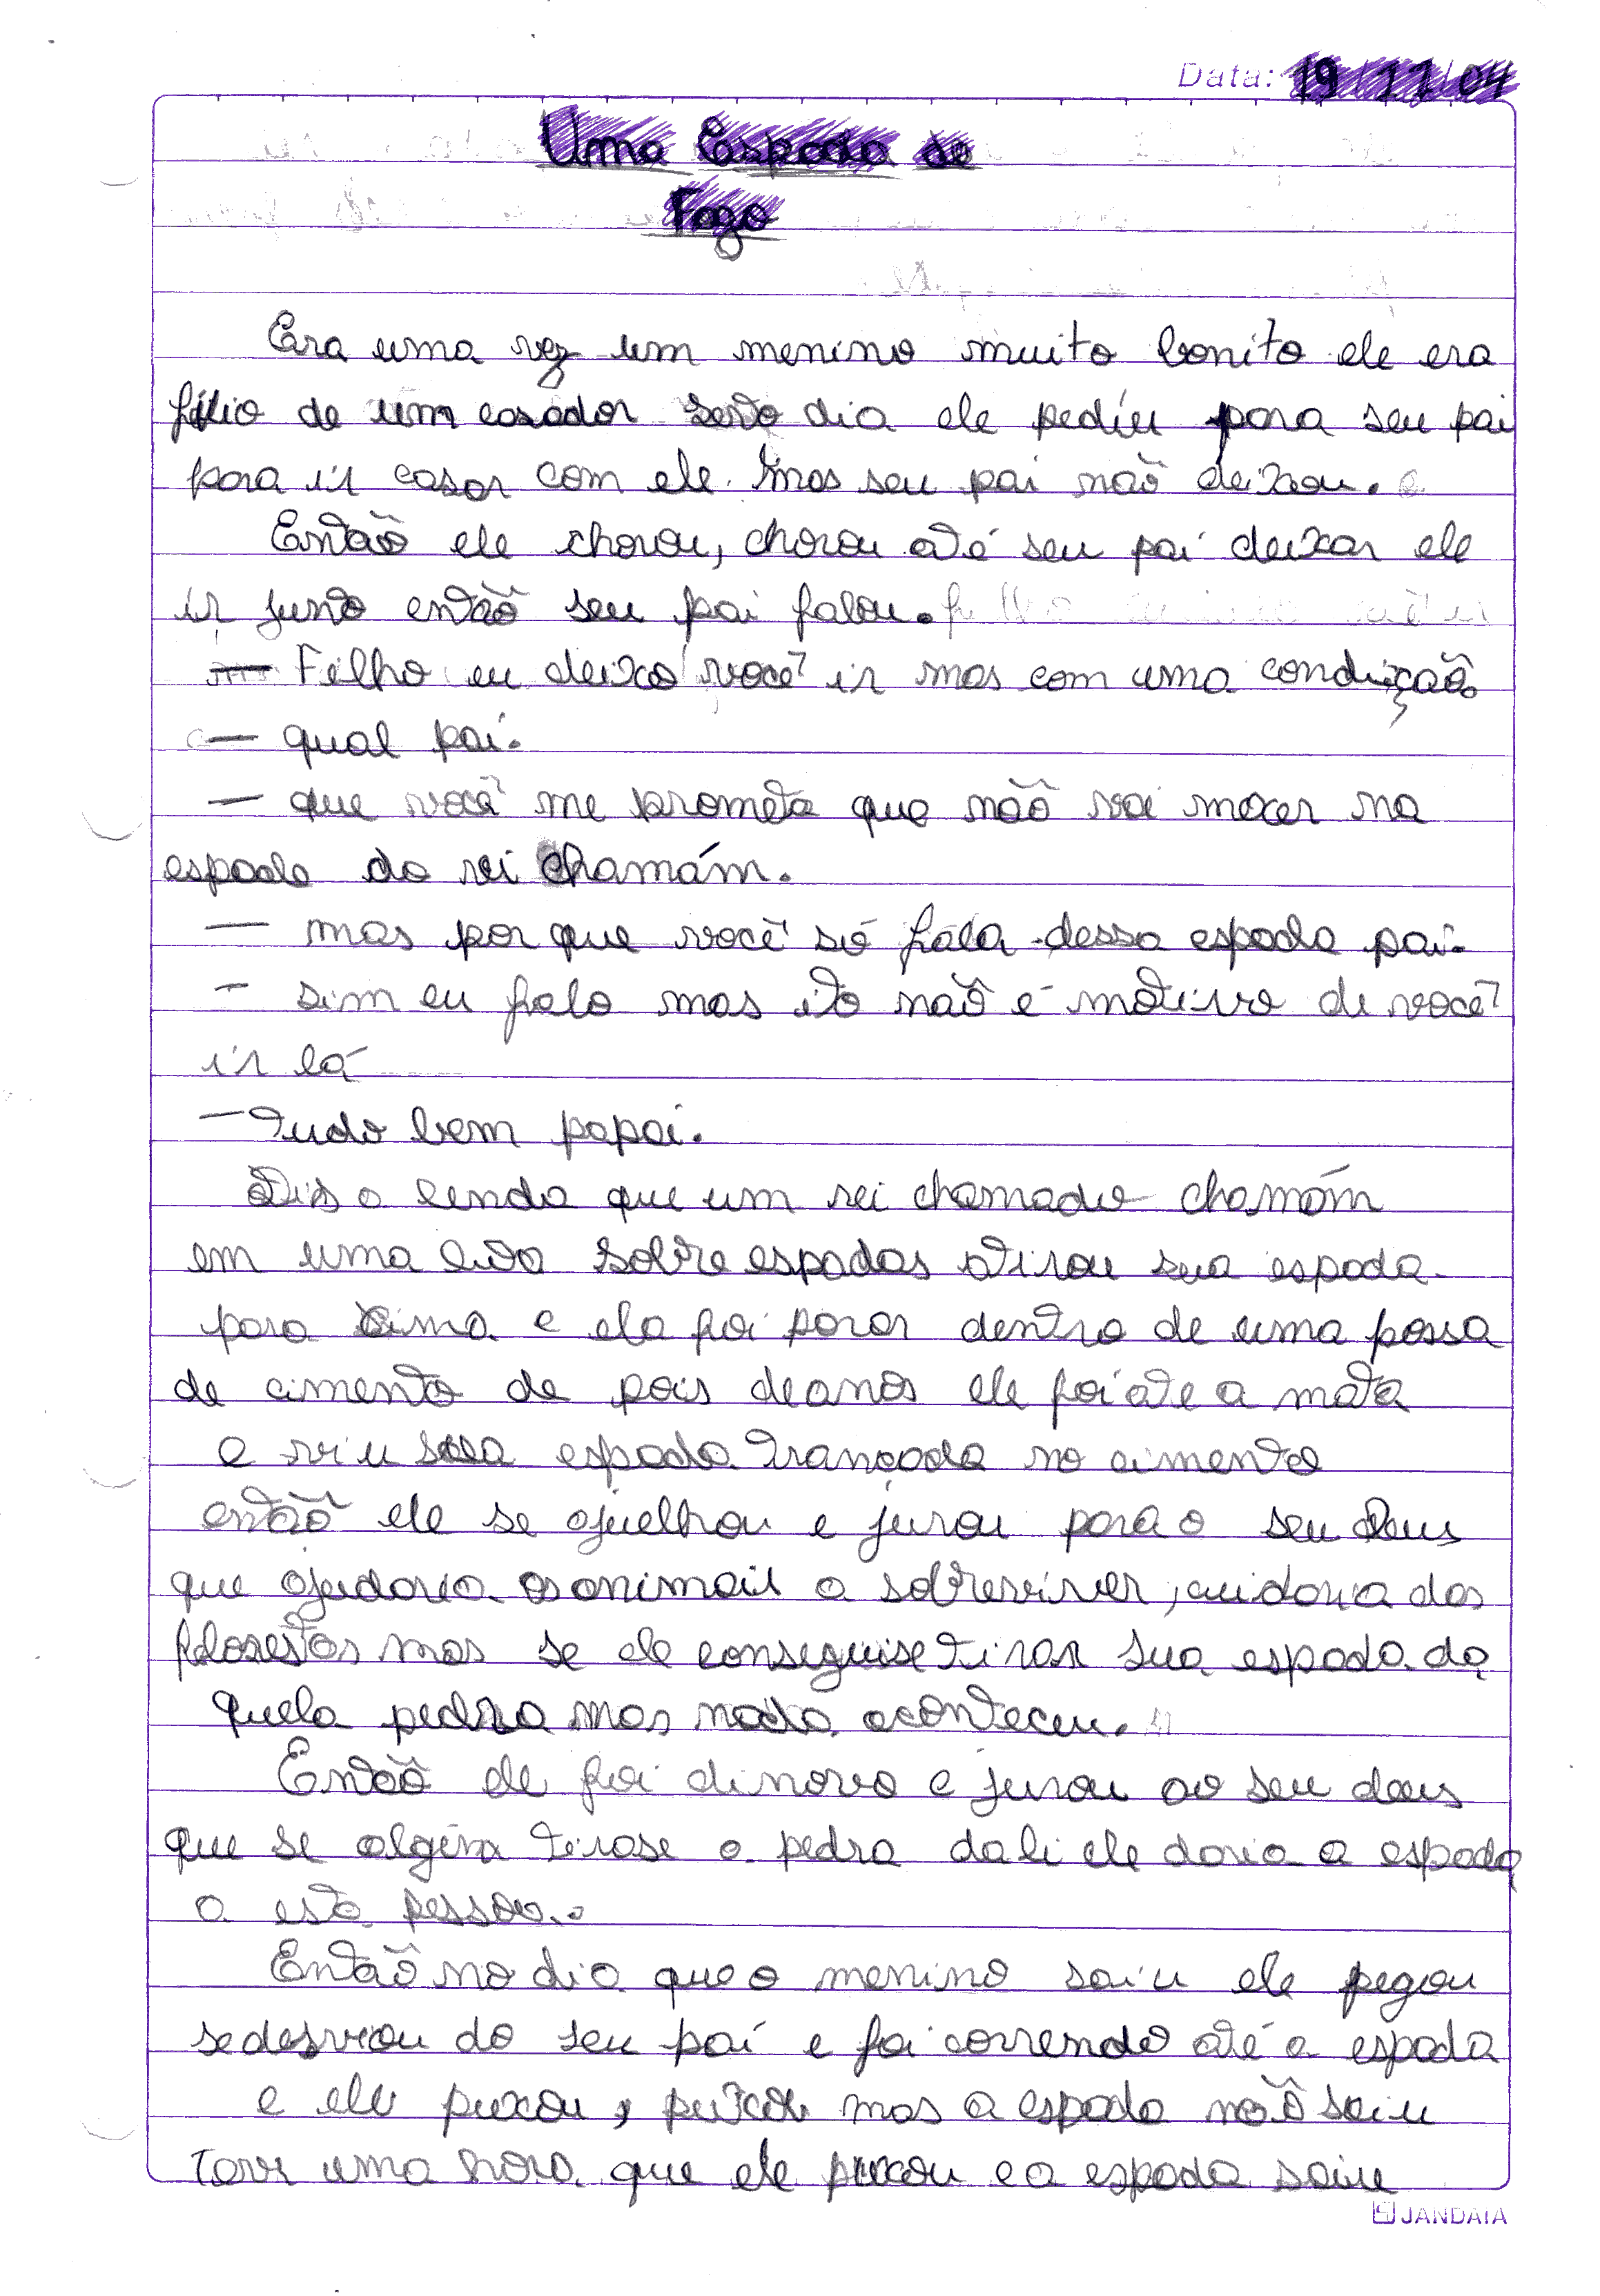 Data: 19/11/04
Uma Espada de
Fogo
Era uma vez um menino muito bonito ele era
filio de um casador serto dia ele pediu para seu pai
para ir casar com ele. mas seu pai não deixou.
Então ele chorou, chorou até seu pai deixar ele
ir junto então seu pai falou.
— Filho eu deixo você ir mas com uma condição
— qual pai.
— que você me prometa que não vai mexer na
espada do rei chamám.
— mas por que você só fala dessa espada pai.
— sim eu falo mas ito não é motivo de você
ir lá
— tudo bem papai.
Dis a lenda que um rei chamado chamám
em uma luta sobre espadas atirou sua espada
para cima e ela foi parar dentro de uma possa
de cimento de pois de anos ele foi ate a mata
e viu sua espada trancada no cimento
então ele se ajuelhou e jurou para o seu Deus
que ajudaria os animais a sobreviver, cuidaria das
florestas mas se ele conseguise tirar sua espada da
quela pedra mas nada aconteceu.
Então ele foi di novo e jurou ao seu deus
que se algem tirase a pedra dali ele daria a espada
a esta pessoa.
Então no dia que o menino saiu ele pegou
se desviou do seu pai e foi correndo até a espada
e ele puxou, puxou mas a espada não saiu
teve uma hora que ele puxou e a espada saiu
JANDAIA